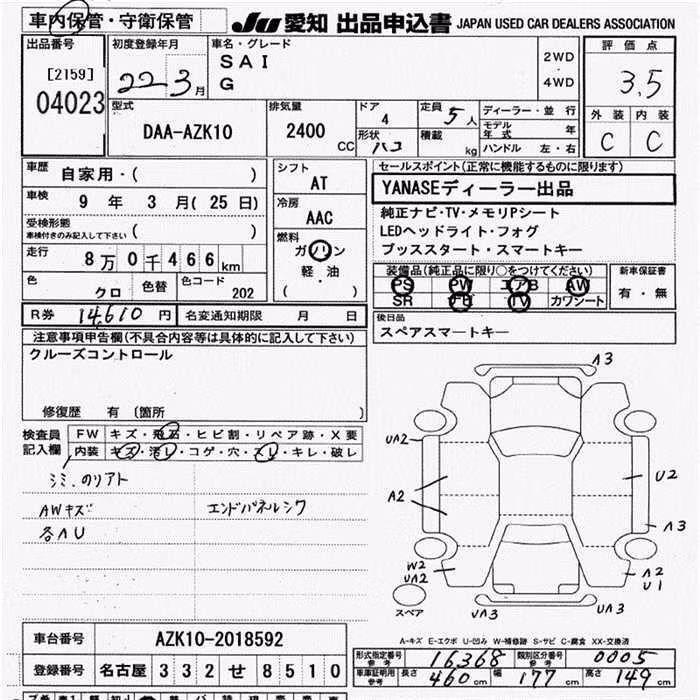 車内保管・守衛保管
JU 愛知 出品申込書 JAPAN USED CAR DEALERS ASSOCIATION
出品番号
[2159]
04023
初度登録年月
22 3月
車名・グレード
SAI
G
2WD
・
4WD
評価点
3.5
外装 内装
C C
型式
DAA-AZK10
排気量
2400 CC
ドア
4
形状
ハコ
定員
5人
積載
kg
ディーラー・並行
モデル年式 年
ハンドル 左・右
車歴
自家用・( )
車検
9年 3月(25日)
受検形態
車検付きのみ記入して下さい ( )
走行
8万0千466km
色
クロ
色替
色コード
202
シフト
AT
冷房
AAC
燃料
ガソリン
軽・油
( )
セールスポイント(正常に機能するものに限ります)
YANASEディーラー出品
純正ナビ・TV・メモリPシート
LEDヘッドライト・フォグ
プッススタート・スマートキー
装備品(純正品に限り○をつけてください)
PS PW エアB AW
SR ナビ TV カワシート
新車保証書
有・無
R券 14610円 名変通知期限 月 日
後日品
スペアスマートキー
注意事項申告欄(不具合内容等は具体的に記入して下さい)
クルーズコントロール
修復歴 有 (箇所 )
検査員記入欄
FW キズ・飛石・ヒビ割・リペア跡・X要
内装 キズ・汚レ・コゲ・穴・スレ・キレ・破レ
AWキズ
各ΛU
エンドパネルシワ
A3
UA2
A2
U2
A3
W2
UA2
A2
U1
UA3
UA3
スペア
A-キズ E-エクボ U-凹み W-補修跡 S-サビ C-腐食 XX-交換済
車台番号 AZK10-2018592
登録番号 名古屋 332 せ 8510
形式指定番号 参考 16368 類別区分番号 参考 0005
車庫証明用 参考 長さ 460cm 幅 177cm 高さ 149cm